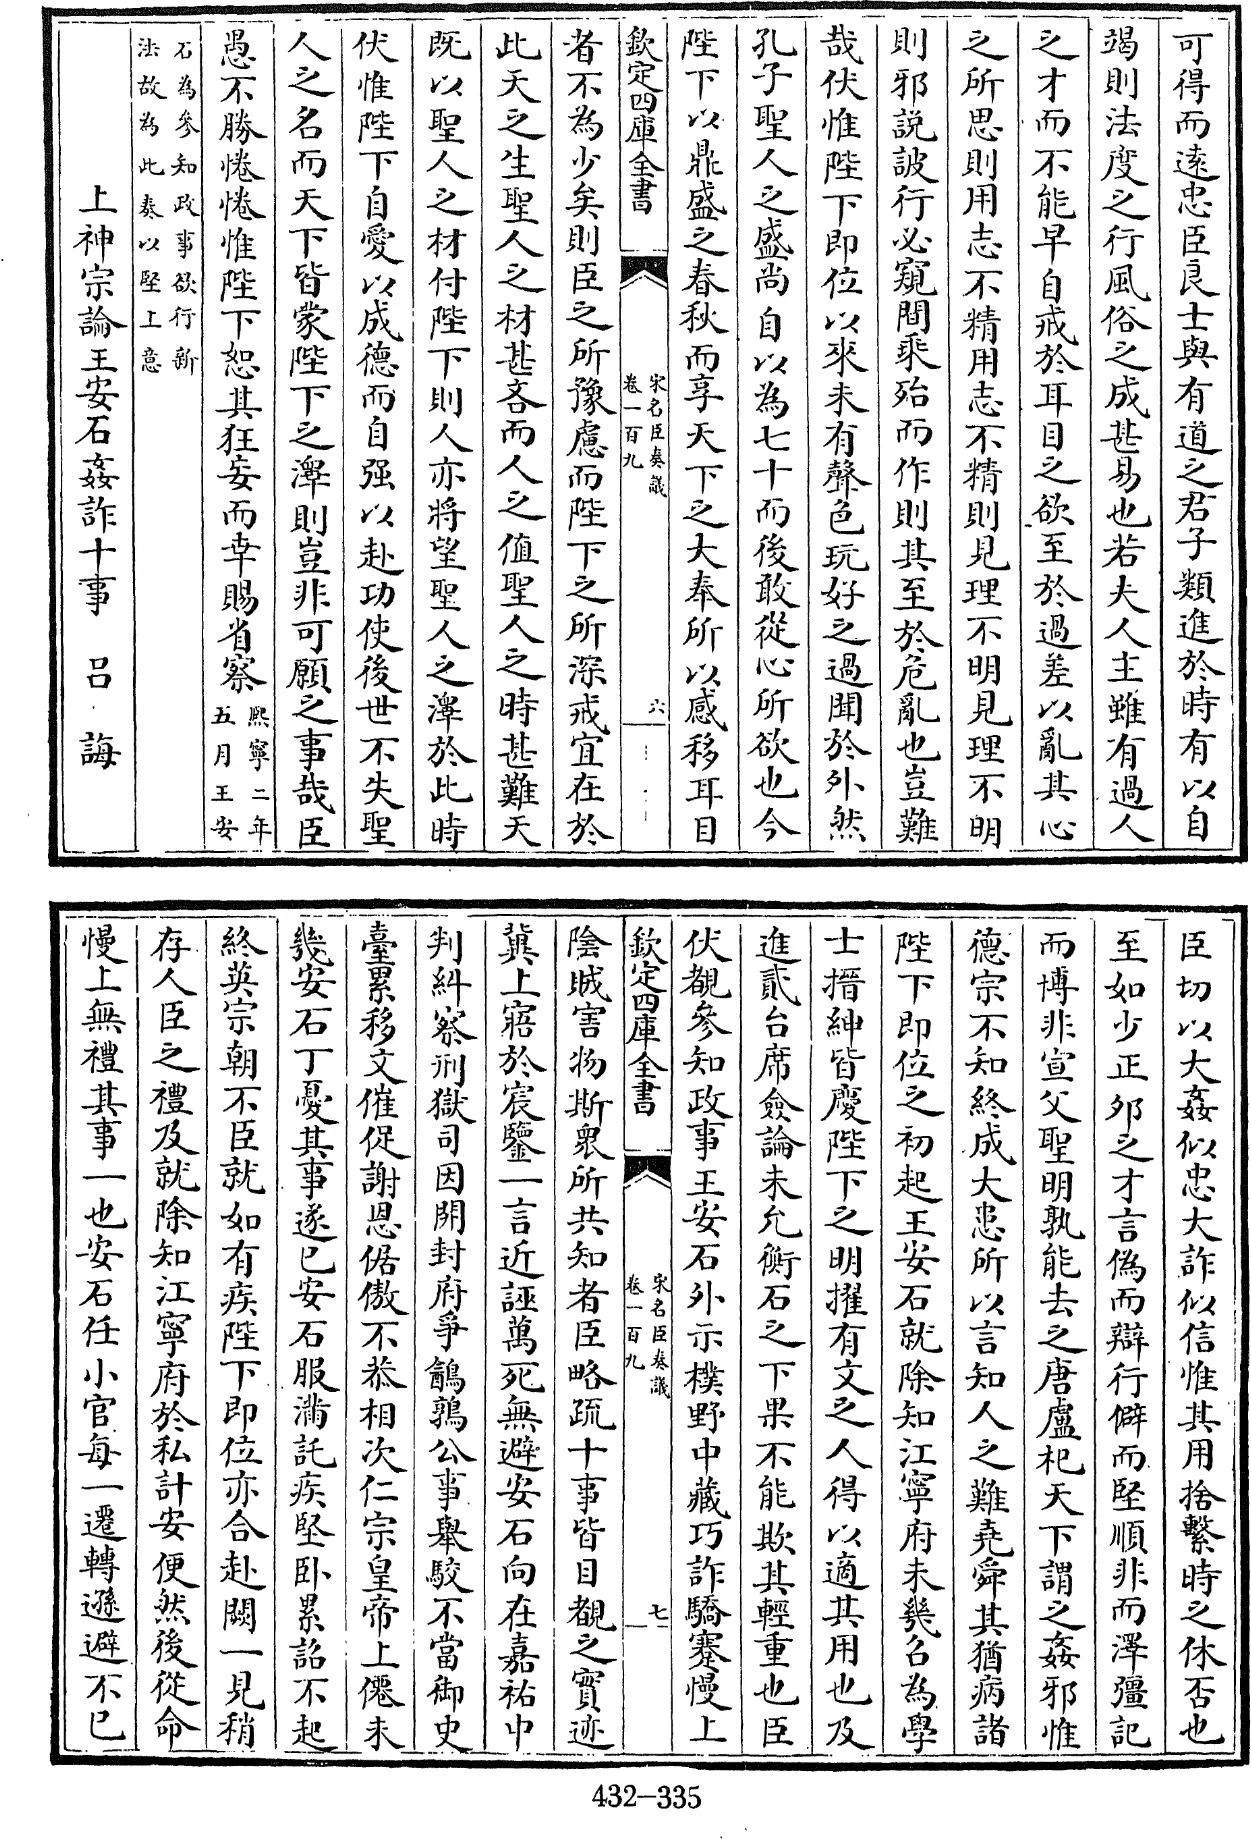 可得而遠忠臣良士與有道之君子類進於時有以自
竭則法度之行風俗之成甚易也若夫人主雖有過人
之才而不能早自戒於耳目之欲至於過差以亂其心
之所思則用志不精用志不精則見理不明見理不明
則邪說詖行必窺間乘殆而作則其至於危亂也豈難
哉伏惟陛下即位以來未有聲色玩好之過聞於外然
孔子聖人之盛尚自以為七十而後敢從心所欲也今
陛下以鼎盛之春秋而享天下之大奉所以感移耳目
欽定四庫全書
宋名臣奏議
卷一百九
六
者不為少矣則臣之所豫慮而陛下之所深戒宜在於
此天之生聖人之材甚吝而人之值聖人之時甚難天
既以聖人之材付陛下則人亦將望聖人之澤於此時
伏惟陛下自愛以成德而自强以赴功使後世不失聖
人之名而天下皆蒙陛下之澤則豈非可願之事哉臣
愚不勝惓惓惟陛下恕其狂妄而幸賜省察
熈寧二年
五月王安
石為參知政事欲行新
法故為此奏以堅上意
上神宗論王安石姦詐十事 呂誨
臣切以大姦似忠大詐似信惟其用捨繫時之休否也
至如少正夘之才言偽而辯行僻而堅順非而澤彊記
而博非宣父聖明孰能去之唐盧杞天下謂之姦邪惟
德宗不知終成大患所以言知人之難堯舜其猶病諸
陛下即位之初起王安石就除知江寧府未幾召為學
士搢紳皆慶陛下之明擢有文之人得以適其用也及
進貳台席僉論未允衡石之下果不能欺其輕重也臣
伏覩參知政事王安石外示樸野中藏巧詐驕蹇慢上
欽定四庫全書
宋名臣奏議
卷一百九
七
陰賊害物斯衆所共知者臣略疏十事皆目覩之實迹
冀上寤於宸鑒一言近誣萬死無避安石向在嘉祐中
判糾察刑獄司因開封府爭鶻鶉公事舉駮不當御史
臺累移文催促謝恩倨傲不恭相次仁宗皇帝上僊未
幾安石丁憂其事遂已安石服滿託疾堅卧累詔不起
終英宗朝不臣就如有疾陛下即位亦合赴闕一見稍
存人臣之禮及就除知江寧府於私計安便然後從命
慢上無禮其事一也安石任小官每一遷轉遜避不已
432-335